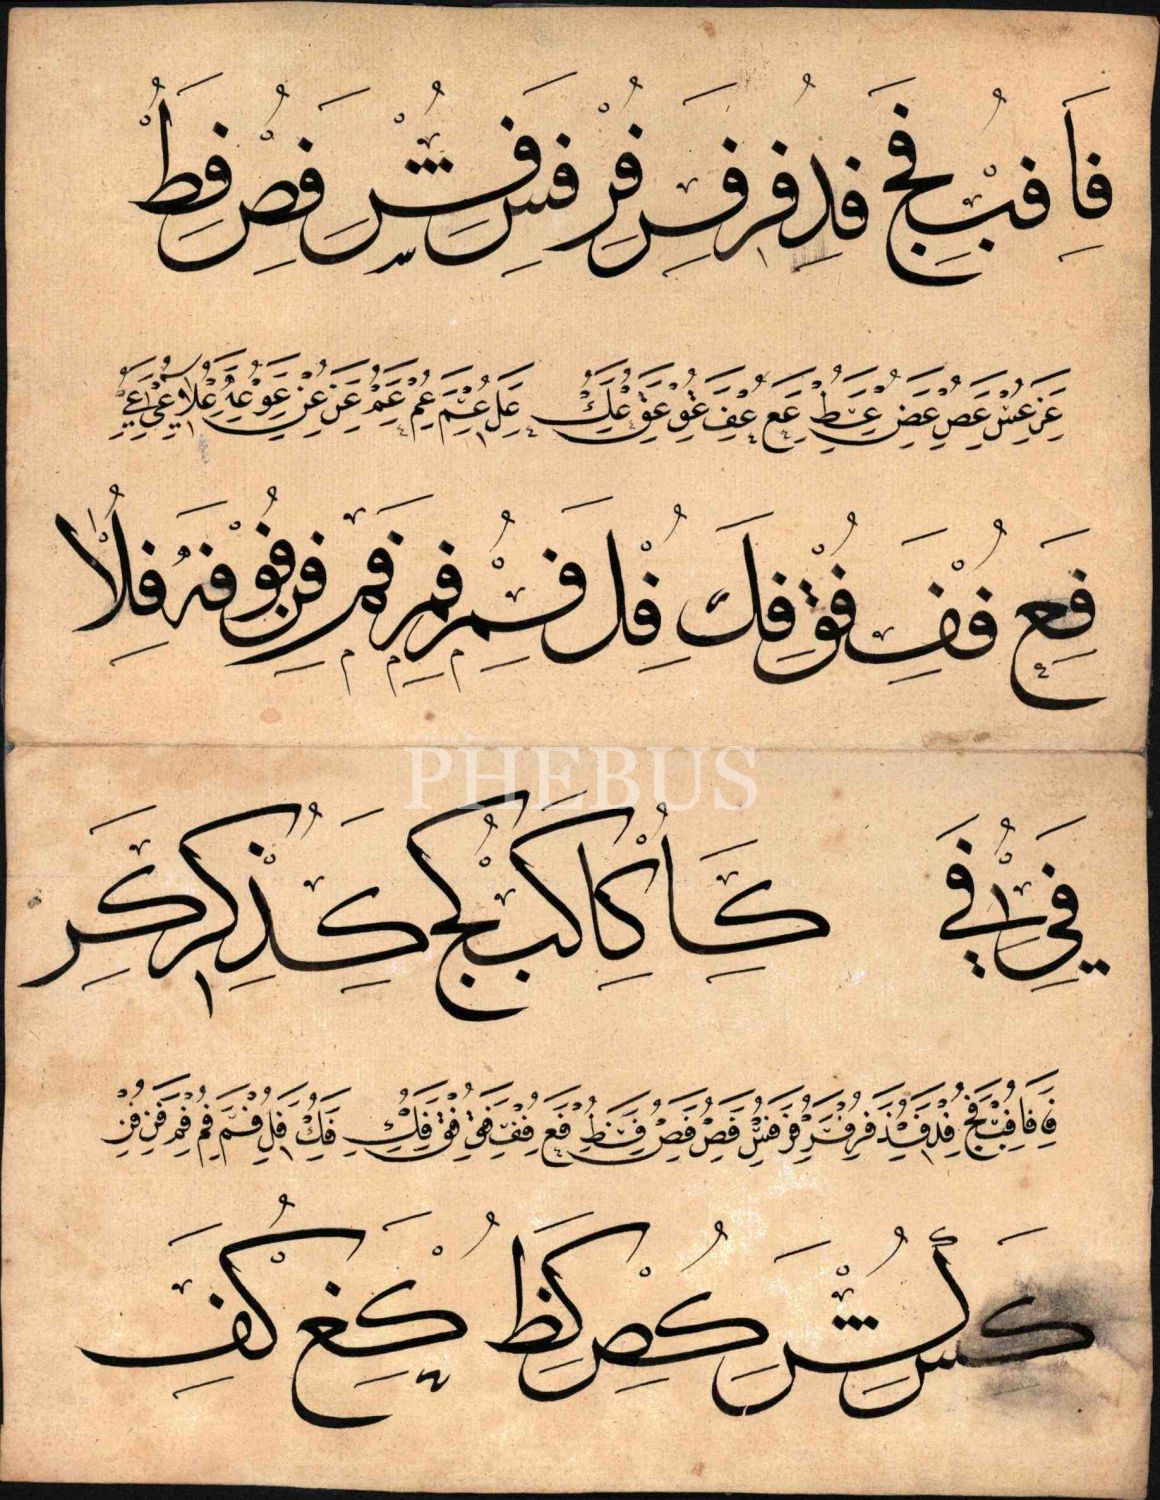 فا فب فج فد فر فر فر فس فش فر فص فط
عر عس عص عض عط عع عف عق عق عك عل عم عم عم عن عن عو عه علا عي عي
فع فف فق فك فل فم فم فم فن فو فه فلا
PHEBUS
في في كا كا كب كج كد كر كر
فا فا فب فج فد فذ فر فر فر فس فص فص فط فع فف فق فق فك فك فل فم فم فم فن فن
كس كش كر كص كظ كغ كف